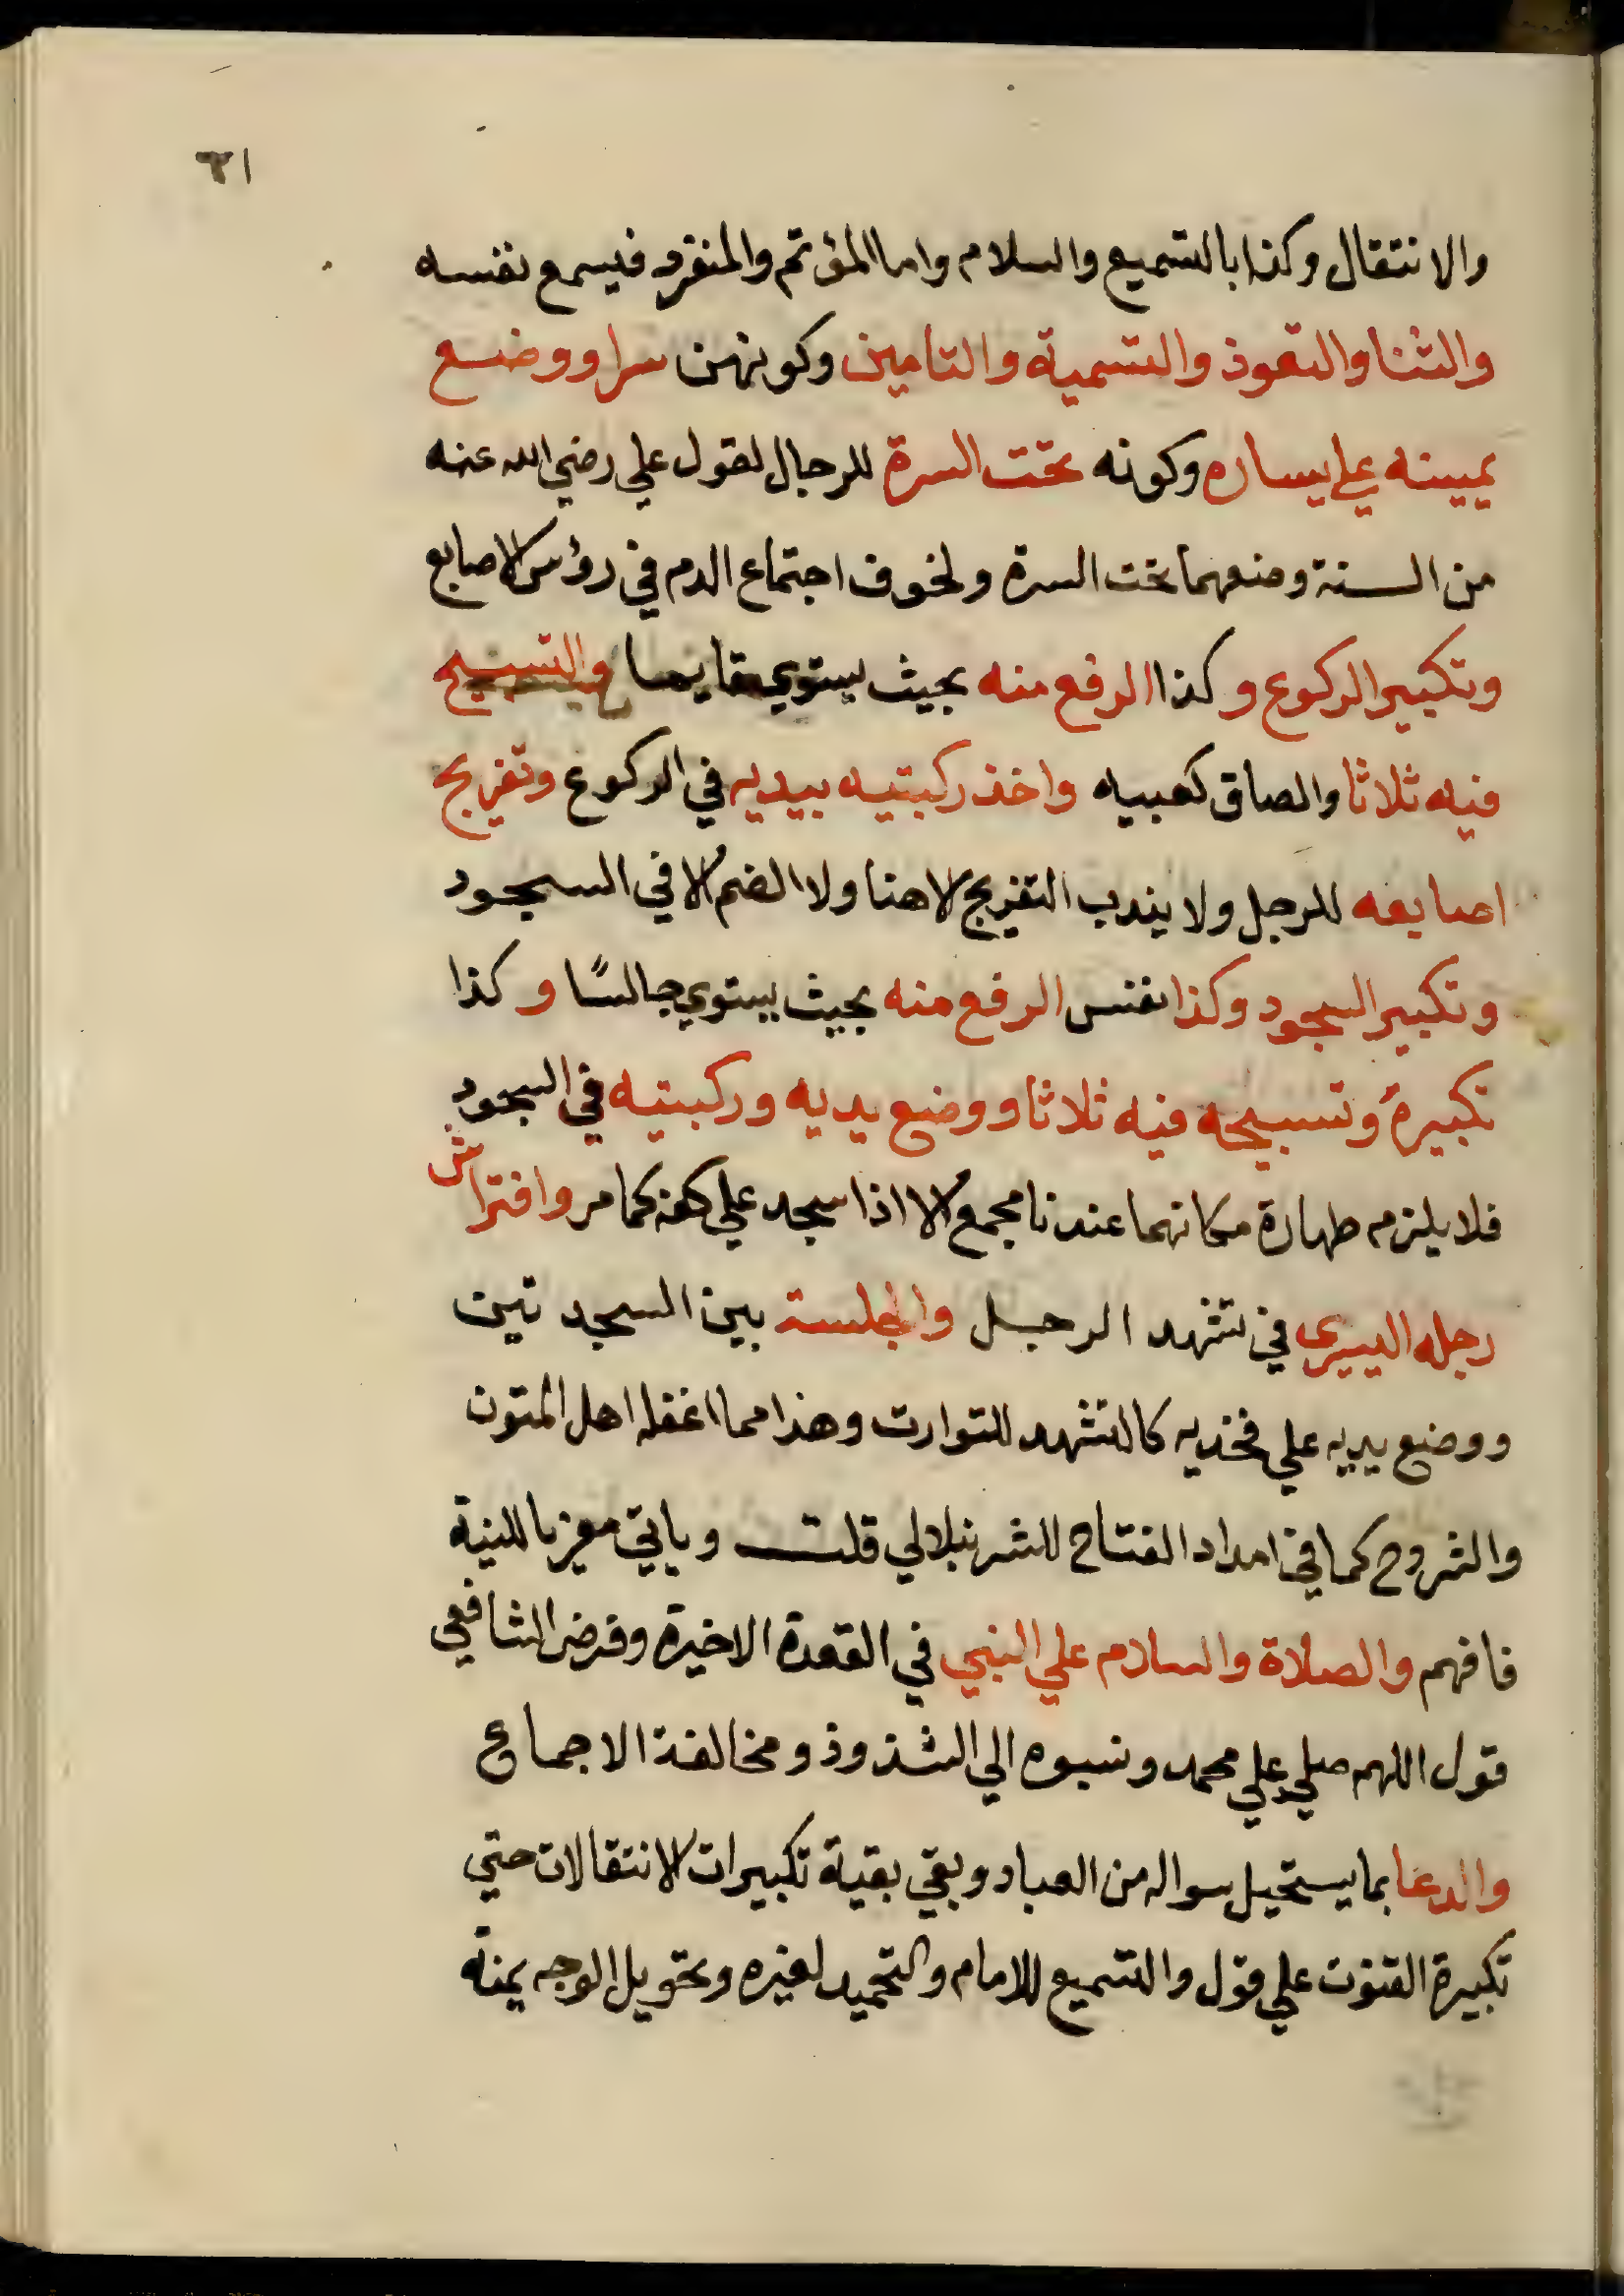 ٦١
والانتقال وكذا بالتسميع والسلام واما المؤتم والمنفرد فيسمع نفسه
والثنا والتعوذ والتسمية والتامين وكونهن سرا ووضع
يمينه علي يساره وكونه تحت السرة للرجال لقول علي رضي الله عنه
من السنة وضعهما تحت السرة ولخوف اجتماع الدم في رؤس الاصابع
وتكبير الركوع وكذا الرفع منه بحيث يستوي قايما والتسبيح
فيه ثلاثا والصاق كعبيه واخذ ركبتيه بيديه في الركوع وتفريج
اصابعه للرجل ولا يندب التفريج الا هنا ولا الضم الا في السجود
وتكبير السجود وكذا نفس الرفع منه بحيث يستوي جالسًا وكذا
تكبيرة وتسبيحه فيه ثلاثا ووضع يديه وركبتيه في السجود
فلا يلزم طهارة مكانهما عندنا مجمع الا اذا سجد علي كفه كما مر وافتراش
رجله اليسري في تشهد الرجل والجلسة بين السجدتين
ووضع يديه علي فخذيه كالتشهد للتوارث وهذا مما اغفله اهل المتون
والشروح كما في امداد الفتاح للشرنبلالي قلت وياتي معزيا للمنية
فافهم والصلاة والسلام علي النبي في القعدة الاخيرة وفرض الشافعي
قول اللهم صلي علي محمد ونسبوه الي الشذوذ ومخالفة الاجماع
والدعا بما يستحيل سواله من العباد وبقي بقية تكبيرات الانتقالات حتي
تكبيرة القنوت علي قول والتسميع للامام والتحميد لغيره وتحويل الوجه يمنة